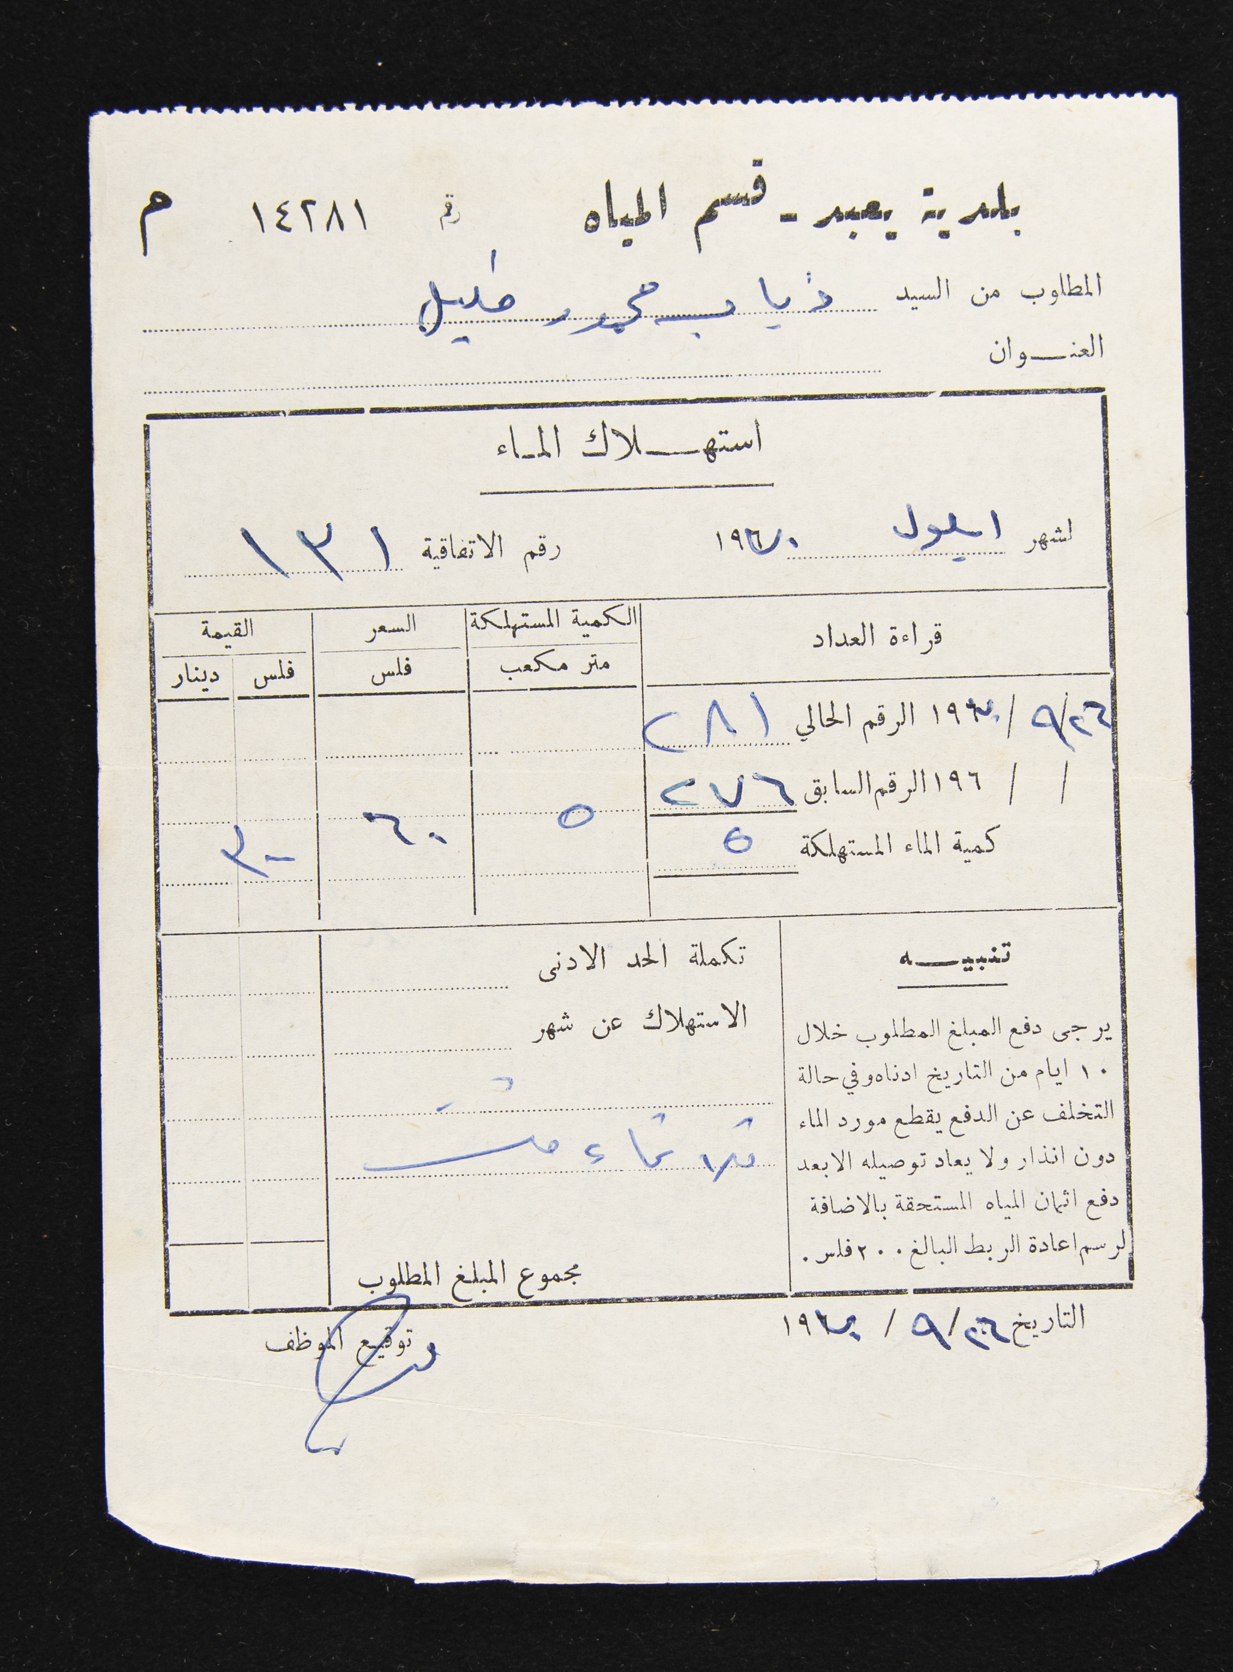 بلدية يعبد - قسم المياه رقم ١٤٢٨١ م
المطلوب من السيد ذياب محمود خليل
العنـــوان
استهـــلاك المـاء
لشهر ايلول ١٩٧٠ رقم الاتفاقية ١٣١
قراءة العداد الكمية المستهلكة السعر القيمة
متر مكعب فلس فلس دينار
٩/٢٦ / ١٩٧٠ الرقم الحالي ٢٨١
/ / ١٩٦ الرقم السابق ٢٧٦
كمية الماء المستهلكة ٥ ٥ ٦٠ ٣٠٠
تنبيـــه
يرجى دفع المبلغ المطلوب خلال
١٠ ايام من التاريخ ادناه وفي حالة
التخلف عن الدفع يقطع مورد الماء
دون انذار ولا يعاد توصيله الا بعد
دفع اثمان المياه المستحقة بالاضافة
لرسم اعادة الربط البالغ ٢٠٠ فلس .
تكملة الحد الادنى
الاستهلاك عن شهر
مجموع المبلغ المطلوب
التاريخ ٩/٢٦ / ١٩٧٠
توقيع الموظف